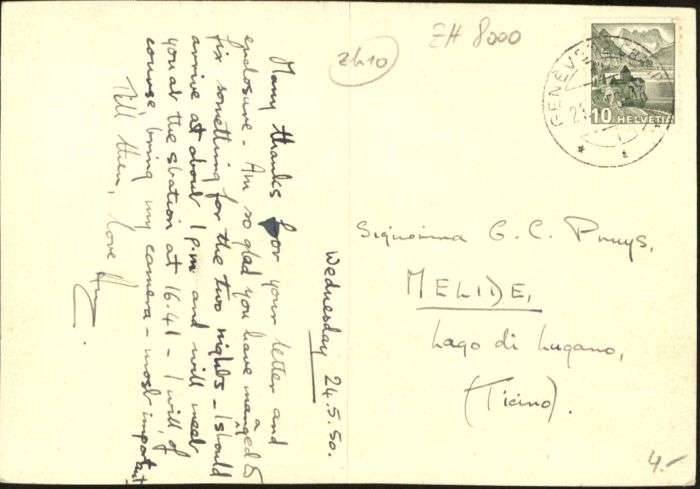 Wednesday 24.5.50.
Many thanks for your letter and
enclosure. Am so glad you have managed to
fix something for the two nights – I should
arrive at about 1 p.m. and will meet
you at the station at 16.41 – I will, of
course, bring my camera – most important
Till then, love
ZH 8000
2h10
GENÈVE
10 HELVETIA
Signorina G. C. Pruys,
MELIDE,
Lago di Lugano,
(Ticino).
4.–